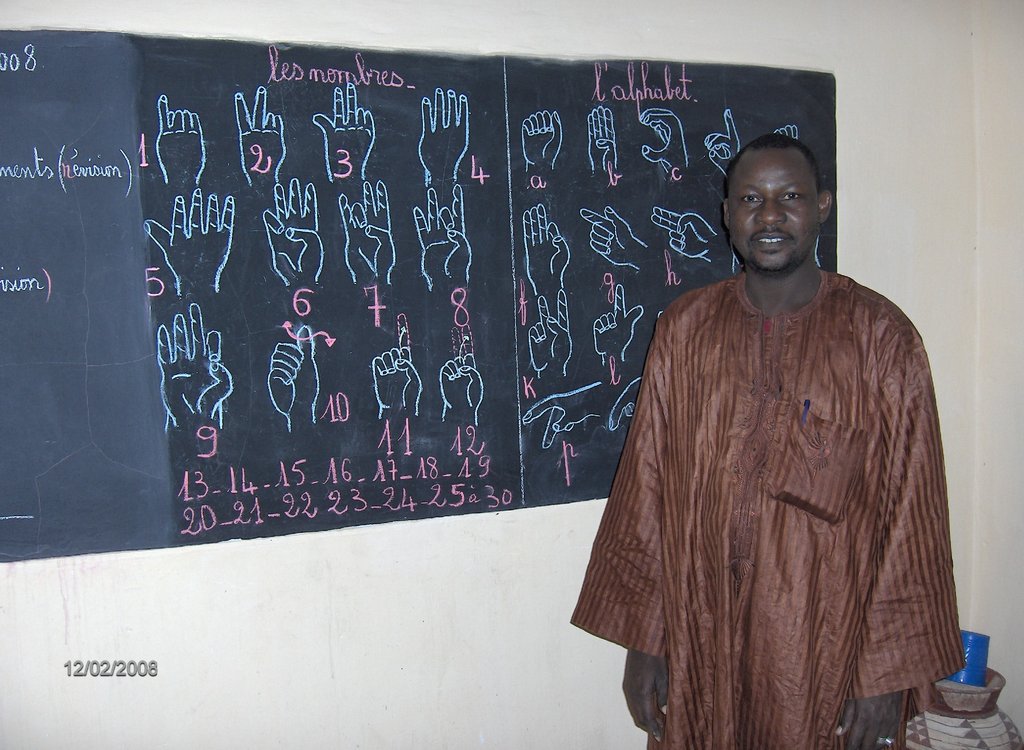 008.
ments (révision)
ision)
les nombres_
1 2 3 4
5 6 7 8
9 10 11 12
13_14_15_16_17_18_19
20_21_22 23_24_25 à 30
l'alphabet.
a b c
f g h
k l
p
12/02/2008